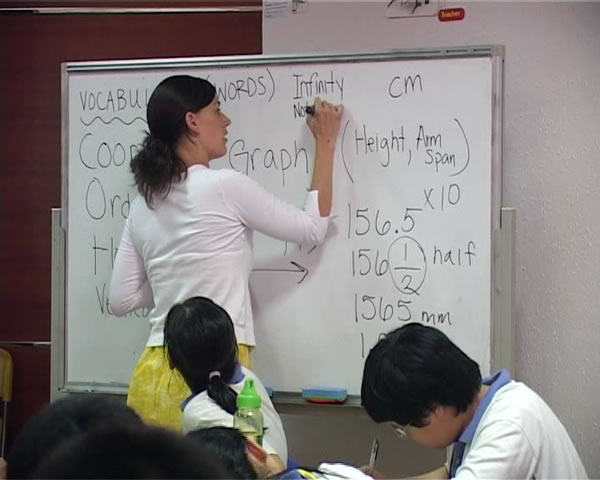 Teacher
VOCABU (WORDS) Infinity cm
Coo Graph (Height, Arm
span)
Ord 156.5 x10
156 1/2 half
1565 mm